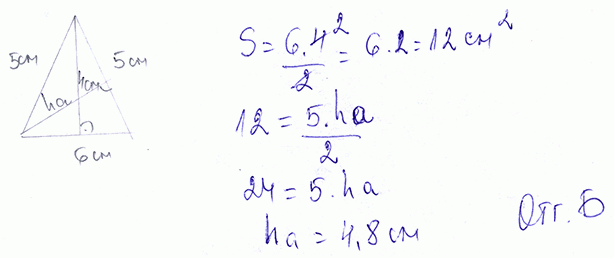 5см 5см
4см
ha
6см
S = 6.4² / 2 = 6.2 = 12 см²
12 = 5.ha / 2
24 = 5.ha
ha = 4,8 см
Отг. Б